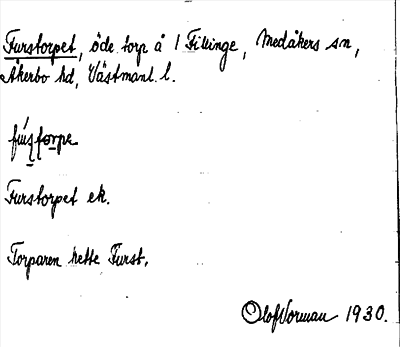 Furstorpet, öde torp å 1 Fillinge, Medåkers sn,
Åkerbo hd, Västmanl. l.
Furstorpet ek.
Torparen hette Furst.
Olof Norman 1930.